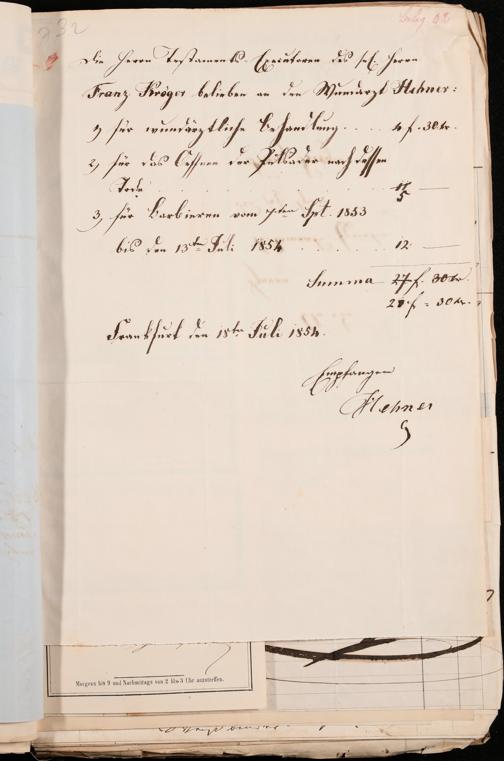 232
Beleg 92
Die Herrn Testaments-Executoren des sel. Herrn
Franz Kröger belieben an den Wundarzt Hehner:
1, für wundärztliche Behandlung . . . . 4 f. 30 kr.
2, für das Oeffnen der Pulsader nach dessen
Tode . . . . . . . 
5 —
3, für Barbieren vom ten Spt. 1853
bis den 13ten Juli 1854 . . . . . 12 —
Summa 27 f. 30 kr.
f. 30 kr.
Frankfurt den 18ten Juli 1854.
Empfangen
Hehner
Morgens bis 9 und Nachmittags von 2 bis 3 Uhr anzutreffen.